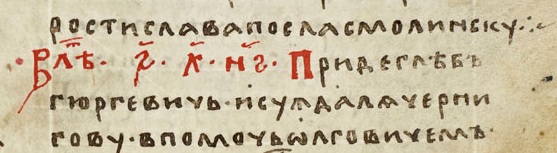 ростиславапосласмолинску·:·
Влѣⷮ· ҂ѕ҃· х҃· н҃г· Придеглѣбъ
гюргевичь·исуждалѧчерни
гову·впомочьѡлговичемъ·